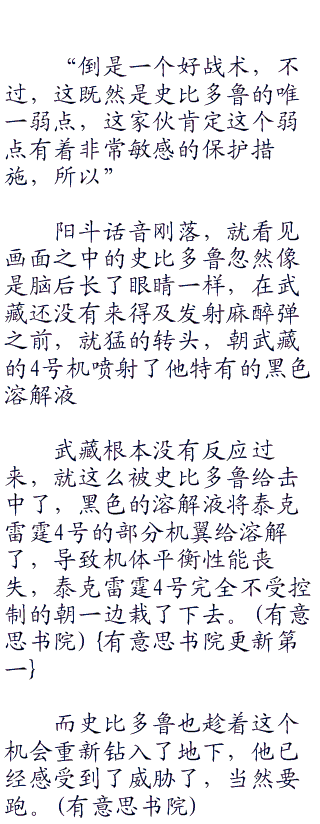 “倒是一个好战术，不
过，这既然是史比多鲁的唯
一弱点，这家伙肯定这个弱
点有着非常敏感的保护措
施，所以”
阳斗话音刚落，就看见
画面之中的史比多鲁忽然像
是脑后长了眼睛一样，在武
藏还没有来得及发射麻醉弹
之前，就猛的转头，朝武藏
的4号机喷射了他特有的黑色
溶解液
武藏根本没有反应过
来，就这么被史比多鲁给击
中了，黑色的溶解液将泰克
雷霆4号的部分机翼给溶解
了，导致机体平衡性能丧
失，泰克雷霆4号完全不受控
制的朝一边栽了下去。(有意
思书院) {有意思书院更新第
一}
而史比多鲁也趁着这个
机会重新钻入了地下，他已
经感受到了威胁了，当然要
跑。(有意思书院)